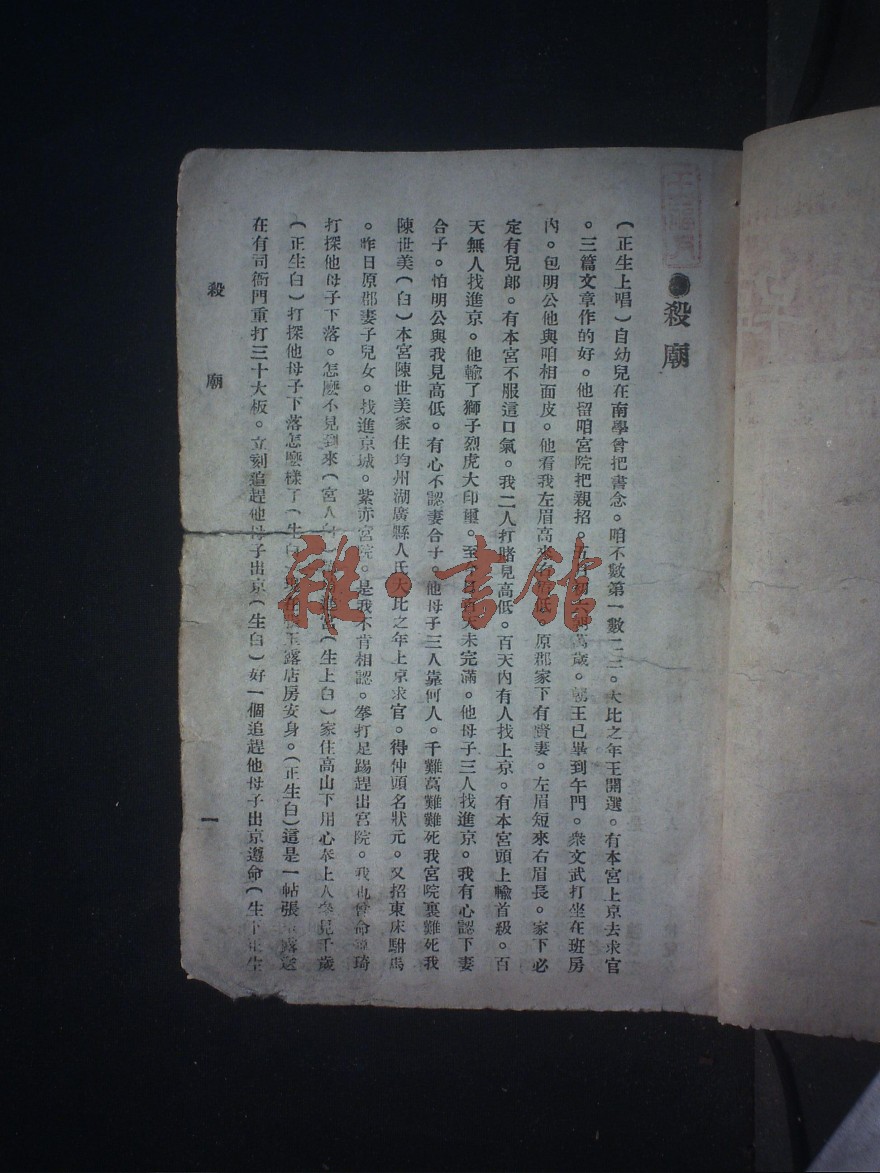 ●殺廟
(正生上唱)自幼兒在南學曾把書念。咱不數第一數二三。大比之年王開選。有本宮上京去求官
。三篇文章作的好。他留咱宮院把親招。萬歲。朝王已畢到午門。衆文武打坐在班房
內。包明公他與咱相面皮。他看我左眉高來右眉低。原郡家下有賢妻。左眉短來右眉長。家下必
定有兒郎。有本宮不服這口氣。我二人打賭見高低。百天內有人找上京。有本宮頭上輸首級。百
天無人找進京。他輸了獅子烈虎大印璽。至今百天未完滿。他母子三人找進京。我有心認下妻
合子。怕明公與我見高低。有心不認妻合子。他母子三人靠何人。千難萬難難死我宮院裏難死我
陳世美(白)本宮陳世美家住均州湖廣縣人氏大比之年上京求官。得仲頭名狀元。又招東床駙馬
。昨日原郡妻子兒女。找進京城。紫亦宮院。是我不肯相認。拳打足踢趕出宮院。我也命琦
打探他母子下落。怎麽不見到來(宮人白)宮(生上白)家住高山下用心奉上人參見千歲
(正生白)打探他母子下落怎麽樣了(生白)露店房安身。(正生白)這是一帖張
在有司衙門重打三十大板。立刻追趕他母子出京(生白)好一個追趕他母子出京遵命(生下正生
殺廟
一
雜·書館